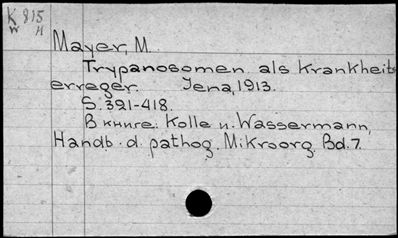 K 815
W H
Mayer, M.
Trypanosomen als Krankheits
erreger. Jena, 1913.
S. 321-418.
В книге: Kolle и. Wassermann,
Handb. d. pathog. Mikroorg. Bd. 7.